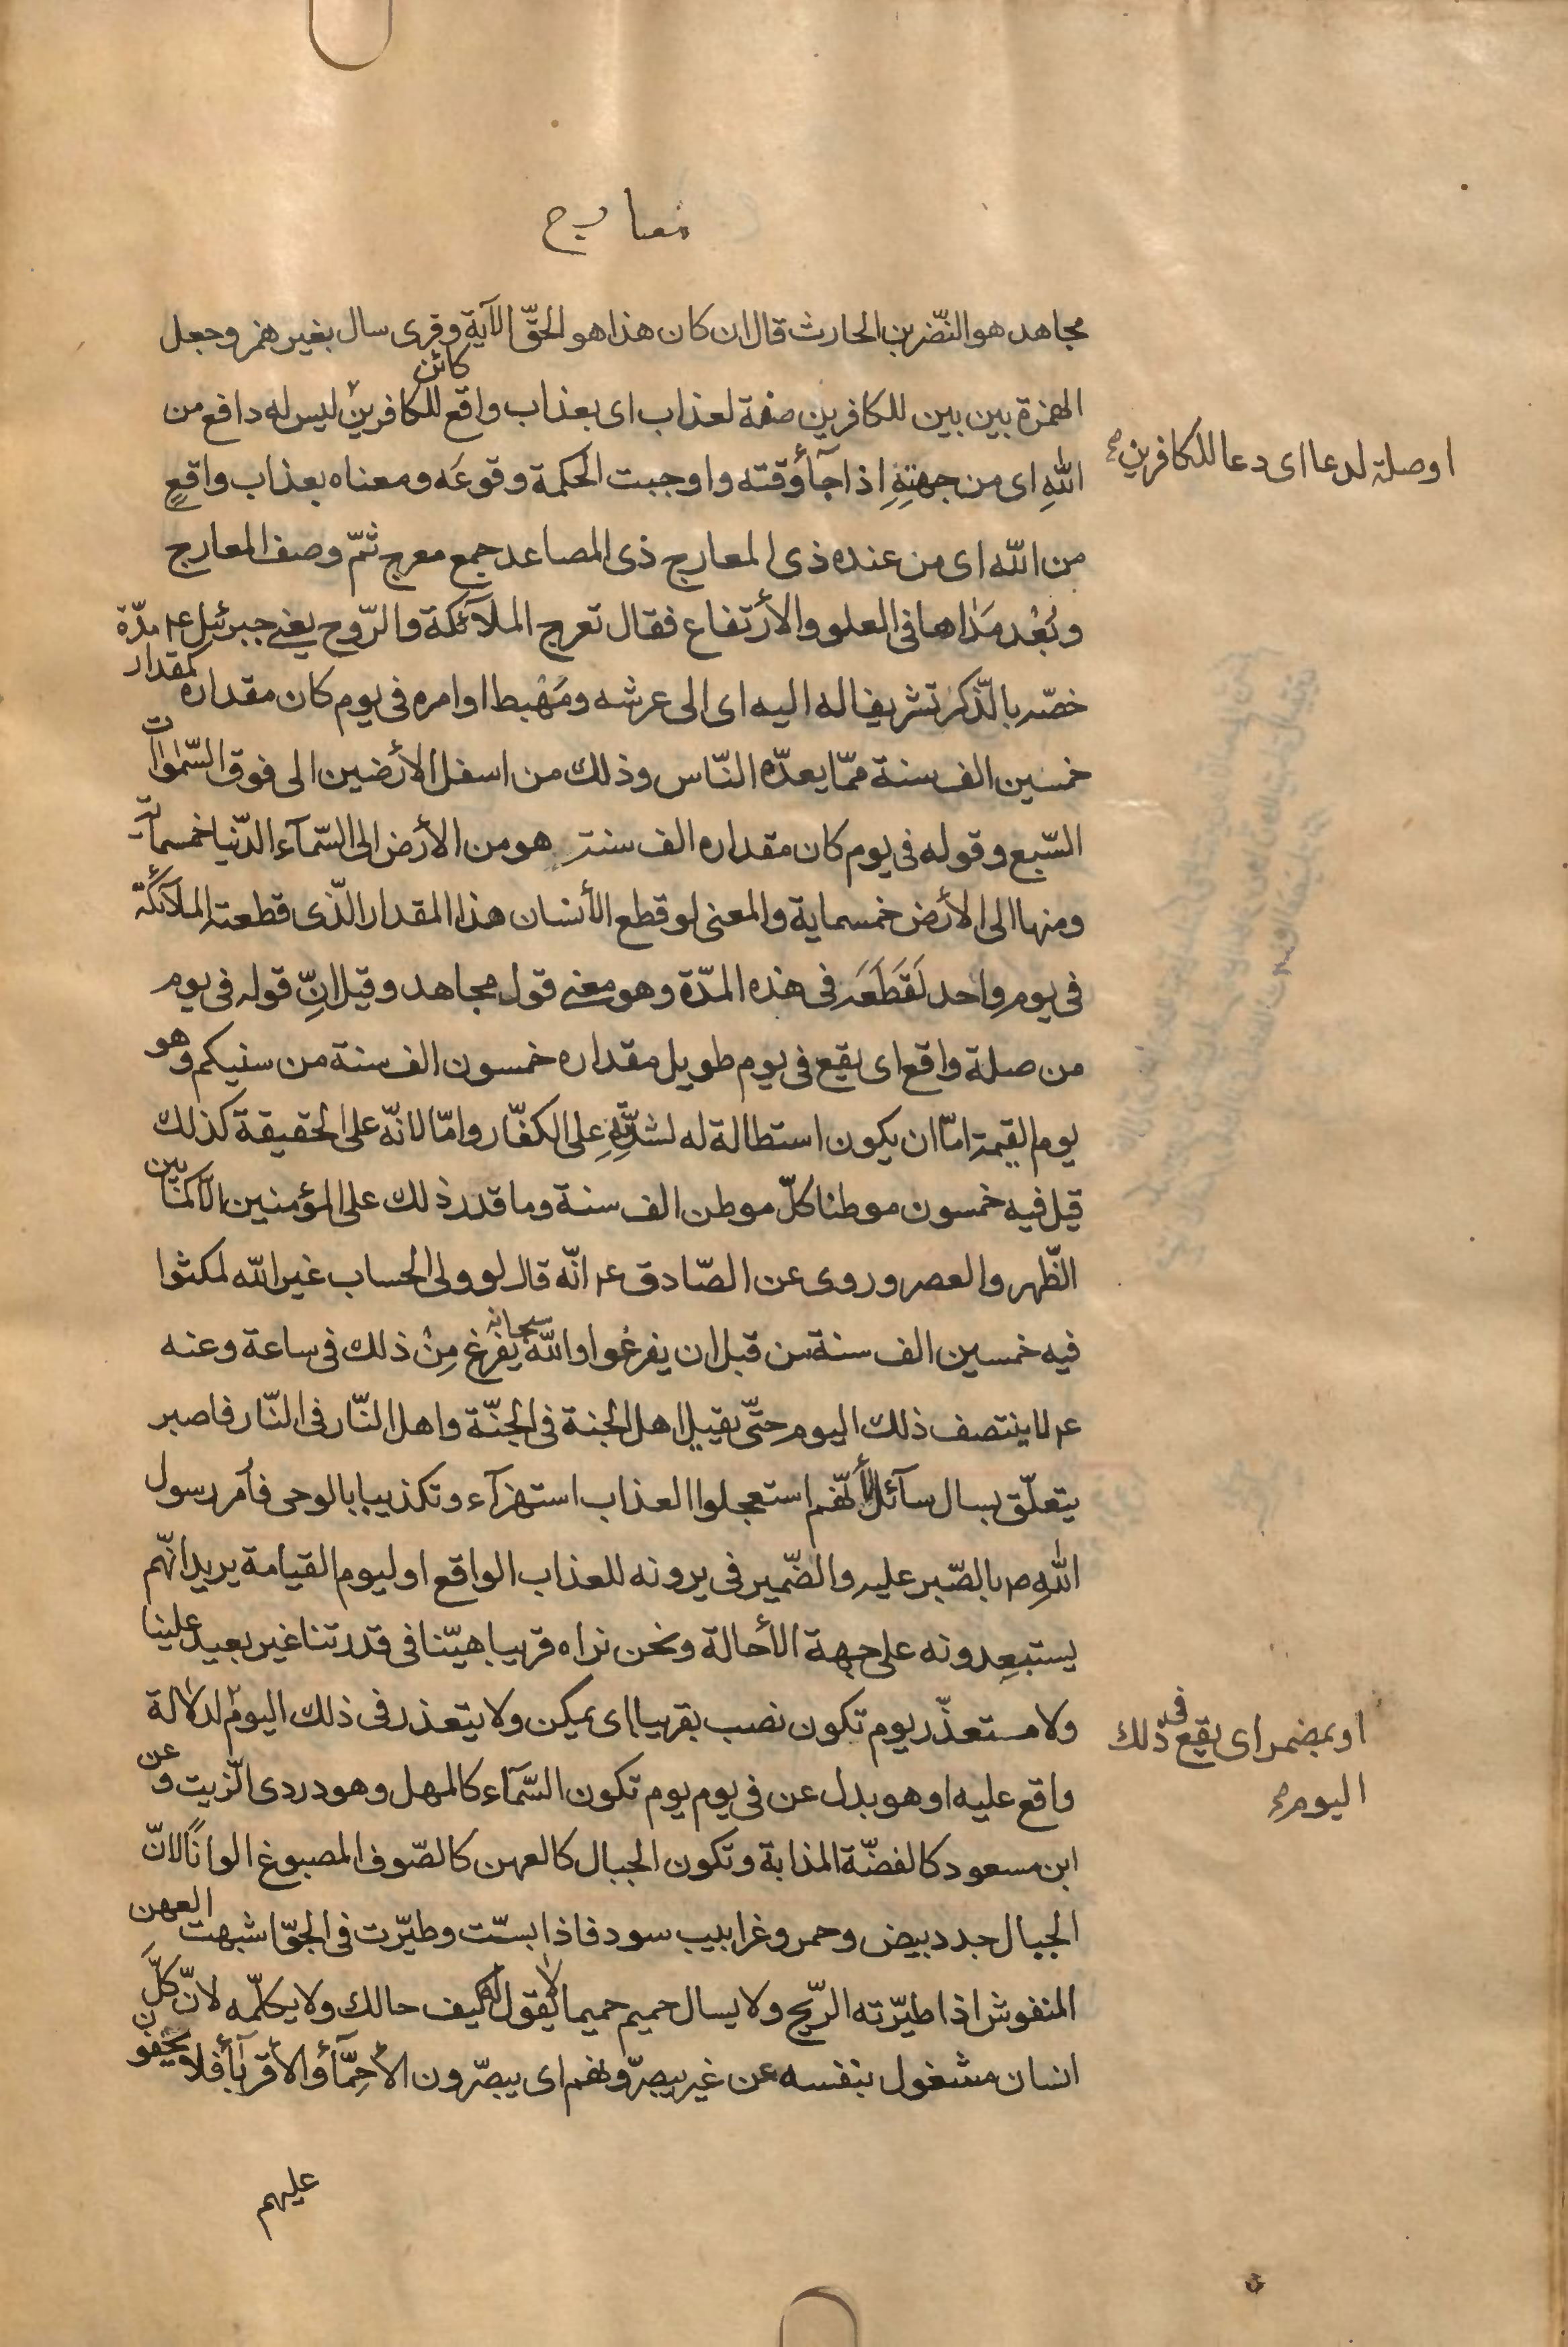 معارج
مجاهد هو النّضر بن الحارث قال ان كان هذا هو الحقّ الآية وقرى سال بغير همز وجعل
الهمزة بين بين للكافرين صفة لعذاب اى بعذاب واقع كائن للكافرين ليس له دافع من
اوصلة لدعا اى دعا للكافرين
اللهِ اى من جهتِهِ اذا جآء وقته واوجبت الحكمة وقوعَه ومعناه بعذاب واقعٍ
من اللّه اى من عنده ذى المعارج ذى المصاعد جمع معرج ثمّ وصف المعارج
وبُعْد مَداها فى العلو والأرتفاع فقال تعرج الملآئكة والرّوح يعنى جبرئيل ع مدّة
خصّه بالذّكر تشريفا له اليه اى الى عرشه ومَهْبط اوامره فى يوم كان مقداره كمقدار
خمسين الف سنة ممّا يعدّه النّاس وذلك من اسفل الأرضين الى فوق السّموات
السّبع وقوله فى يوم كان مقداره الف سنة هو من الأرض الى السّمآء الدّنيا خمسمائة
ومنها الى الأرض خمسماية والمعنى لو قطع الأنسان هذا المقدار الّذى قطعته الملآئكة
فى يوم واحد لَقَطَعَه فى هذه المدّة وهو معنى قول مجاهد وقيل انّ قوله فى يوم
من صلة واقع اى يقع فى يوم طويل مقداره خمسون الف سنة من سنيكم وهو
يوم القيمة امّا ان يكون استطالة له لشدّتِهِ على الكفّار وامّا لانّه على الحقيقة كذلك
قيل فيه خمسون موطنا كلّ موطن الف سنة وما قدر ذلك على المؤمنين الّا كما بين
الظّهر والعصر وروى عن الصّادق ع انّه قال لو ولى الحساب غير اللّه لمكثوا
فيه خمسين الف سنة من قبل ان يفرغوا واللّه سبحانه يفرغ مِنْ ذلك فى ساعة وعنه
ع لا ينتصف ذلك اليوم حتّى يقيل اهل الجنة فى الجنّة واهل النّار فى النّار فاصبر
يتعلّق بسال سآئل لأنّهم استعجلوا العذاب استهزآء وتكذيبا بالوحى فأمر رسول
اللّهِ ص بالصّبر عليه والضّمير فى يرونه للعذاب الواقع او ليوم القيامة يريد انّهم
يستبعِدونه على جهة الأحالة ونحن نراه قريبا هيّنا فى قدرتنا غير بعيد علينا
ولا متعذّر يوم تكون نصب بقريبا اى يمكن ولا يتعذر فى ذلك اليوم لدلالة
او بمضمر اى يقع فى ذلك
اليوم
واقع عليه او هو بدل عن فى يوم يوم تكون السّمآء كالمهل وهو دردى الزّيت وعن
ابن مسعود كالفضّة المذابة وتكون الجبال كالعهن كالصّوف المصبوغ الوانًا لانّ
الجبال جدد بيض وحمر وغرابيب سود فاذا بسّت وطيّرت فى الجوّ اشبهت العهن
المنفوش اذا طيّرته الرّيح ولا يسال حميم حميما لا يقول له كيف حالك ولا يكلّمه لانّ كلّ
انسان مشغول بنفسه عن غير يبصّرونهم اى يبصّرون الأحِمّآء والأقربآء فلا يخفون
عليهم